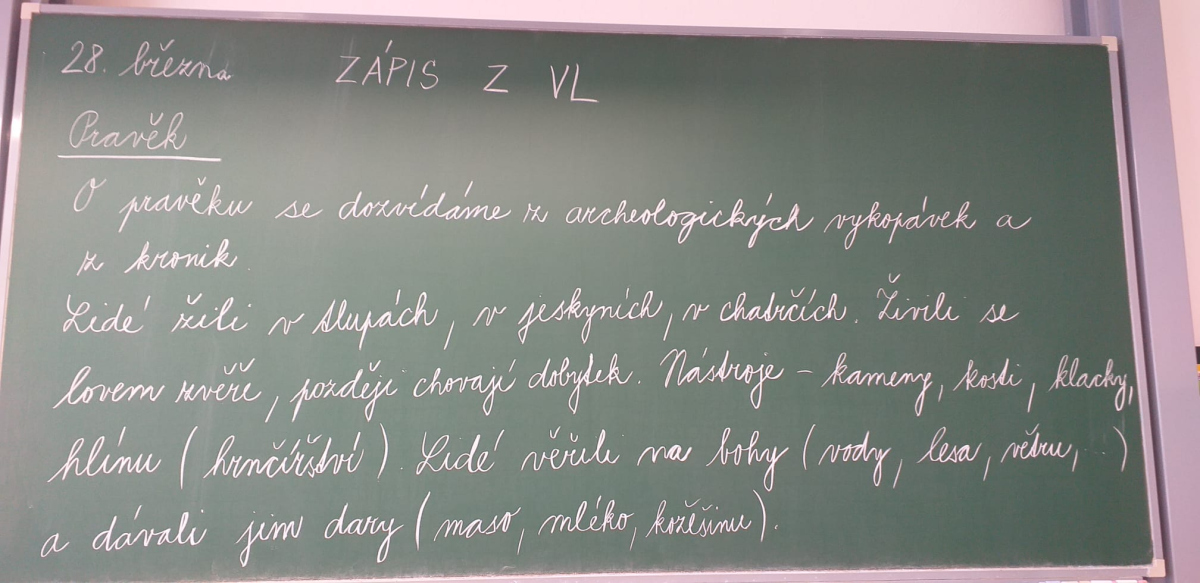 28. března ZÁPIS Z VL
Pravěk
O pravěku se dozvídáme z archeologických vykopávek a
z kronik.
Lidé žili v tlupách, v jeskyních, v chatrčích. Živili se
lovem zvěře, později chovají dobytek. Nástroje - kameny, kosti, klacky,
hlínu (hrnčířství). Lidé věřili na bohy (vody, lesa, větru, ...)
a dávali jim dary (maso, mléko, kožěšinu).